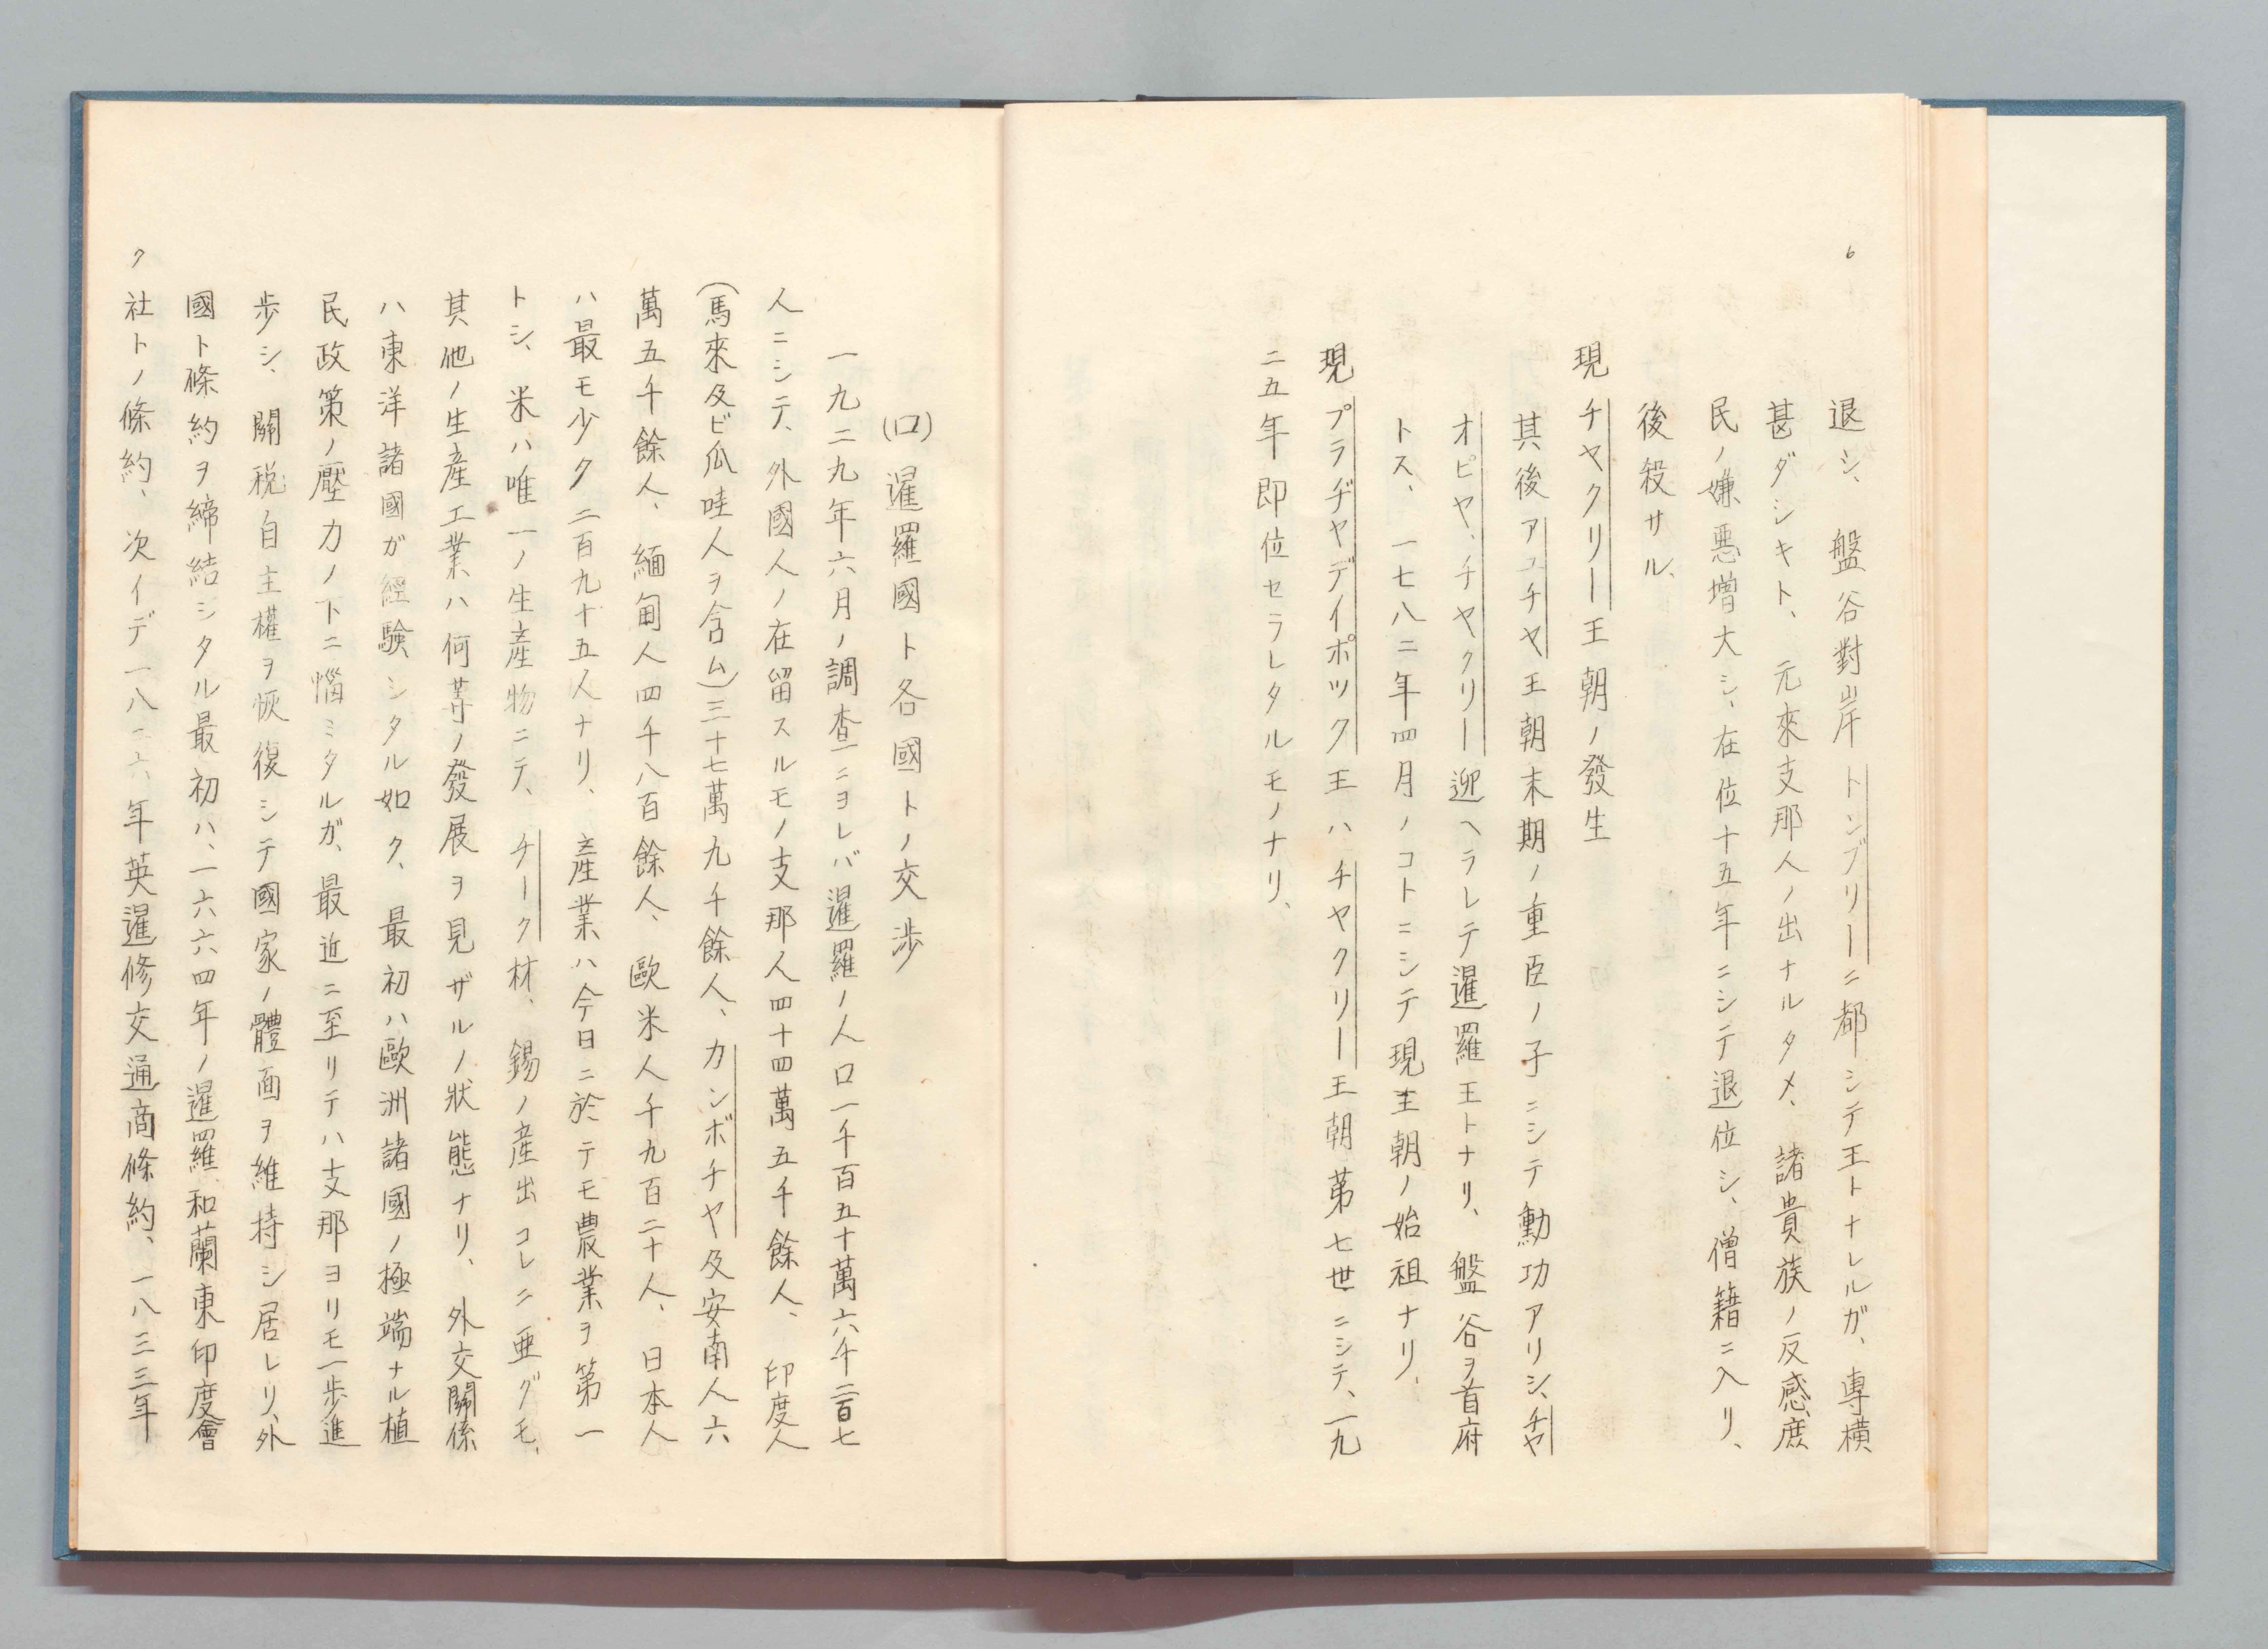 6
退シ、盤谷對岸トンブリーニ都シテ王トナレルガ、專横
甚ダシキト、元來支那人ノ出ナルタメ、諸貴族ノ反感庶
民ノ嫌悪増大シ、在位十五年ニシテ退位シ、僧籍ニ入リ、
後殺サル、
現チヤクリー王朝ノ發生
其後アユチヤ王朝末期ノ重臣ノ子ニシテ勳功アリシ、チヤ
オピヤ、チヤクリー迎ヘラレテ暹羅王トナリ、盤谷ヲ首府
トス、一七八二年四月ノコトニシテ現王朝ノ始祖ナリ、
現プラヂヤデイポツク王ハチヤクリー王朝第七世ニシテ、一九
二五年即位セラレタルモノナリ、
(ロ)暹羅國ト各國トノ交渉
一九二九年六月ノ調査ニヨレバ暹羅ノ人口一千百五十萬六千二百七
人ニシテ、外國人ノ在留スルモノ支那人四十四萬五千餘人、印度人
(馬來及ビ瓜哇人ヲ含ム)三十七萬九千餘人、カンボチヤ及安南人六
萬五千餘人、緬甸人四千八百餘人、歐米人千九百二十人、日本人
ハ最モ少ク二百九十五人ナリ、産業ハ今日ニ於テモ農業ヲ第一
トシ、米ハ唯一ノ生産物ニテ、チーク材、錫ノ産出コレニ亜グモ、
其他ノ生産工業ハ何等ノ發展ヲ見ザルノ狀態ナリ、外交關係
ハ東洋諸國ガ經験シタル如ク、最初ハ歐洲諸國ノ極端ナル植
民政策ノ壓力ノ下ニ惱ミタルガ、最近ニ至リテハ支那ヨリモ一歩進
歩シ、關税自主權ヲ恢復シテ國家ノ體面ヲ維持シ居レリ、外
國ト條約ヲ締結シタル最初ハ、一六六四年ノ暹羅、和蘭東印度會
社トノ條約、次イデ一八二六年英暹修交通商條約、一八三三年
7